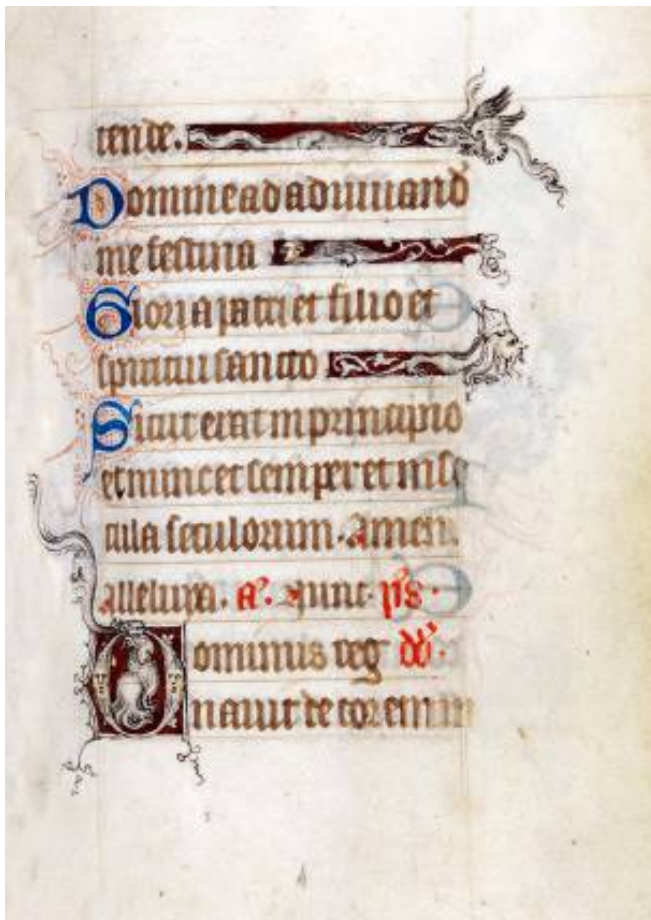 tende.
Domine ad adiuuand
me festina
Gloria patri et filio et
spiritui sancto
Sicut erat in principio
et nunc et semper et in se
cula seculorum. Amen.
alleluya. a. nunt. ps.
Dominus reg dd.
nauit decorem in